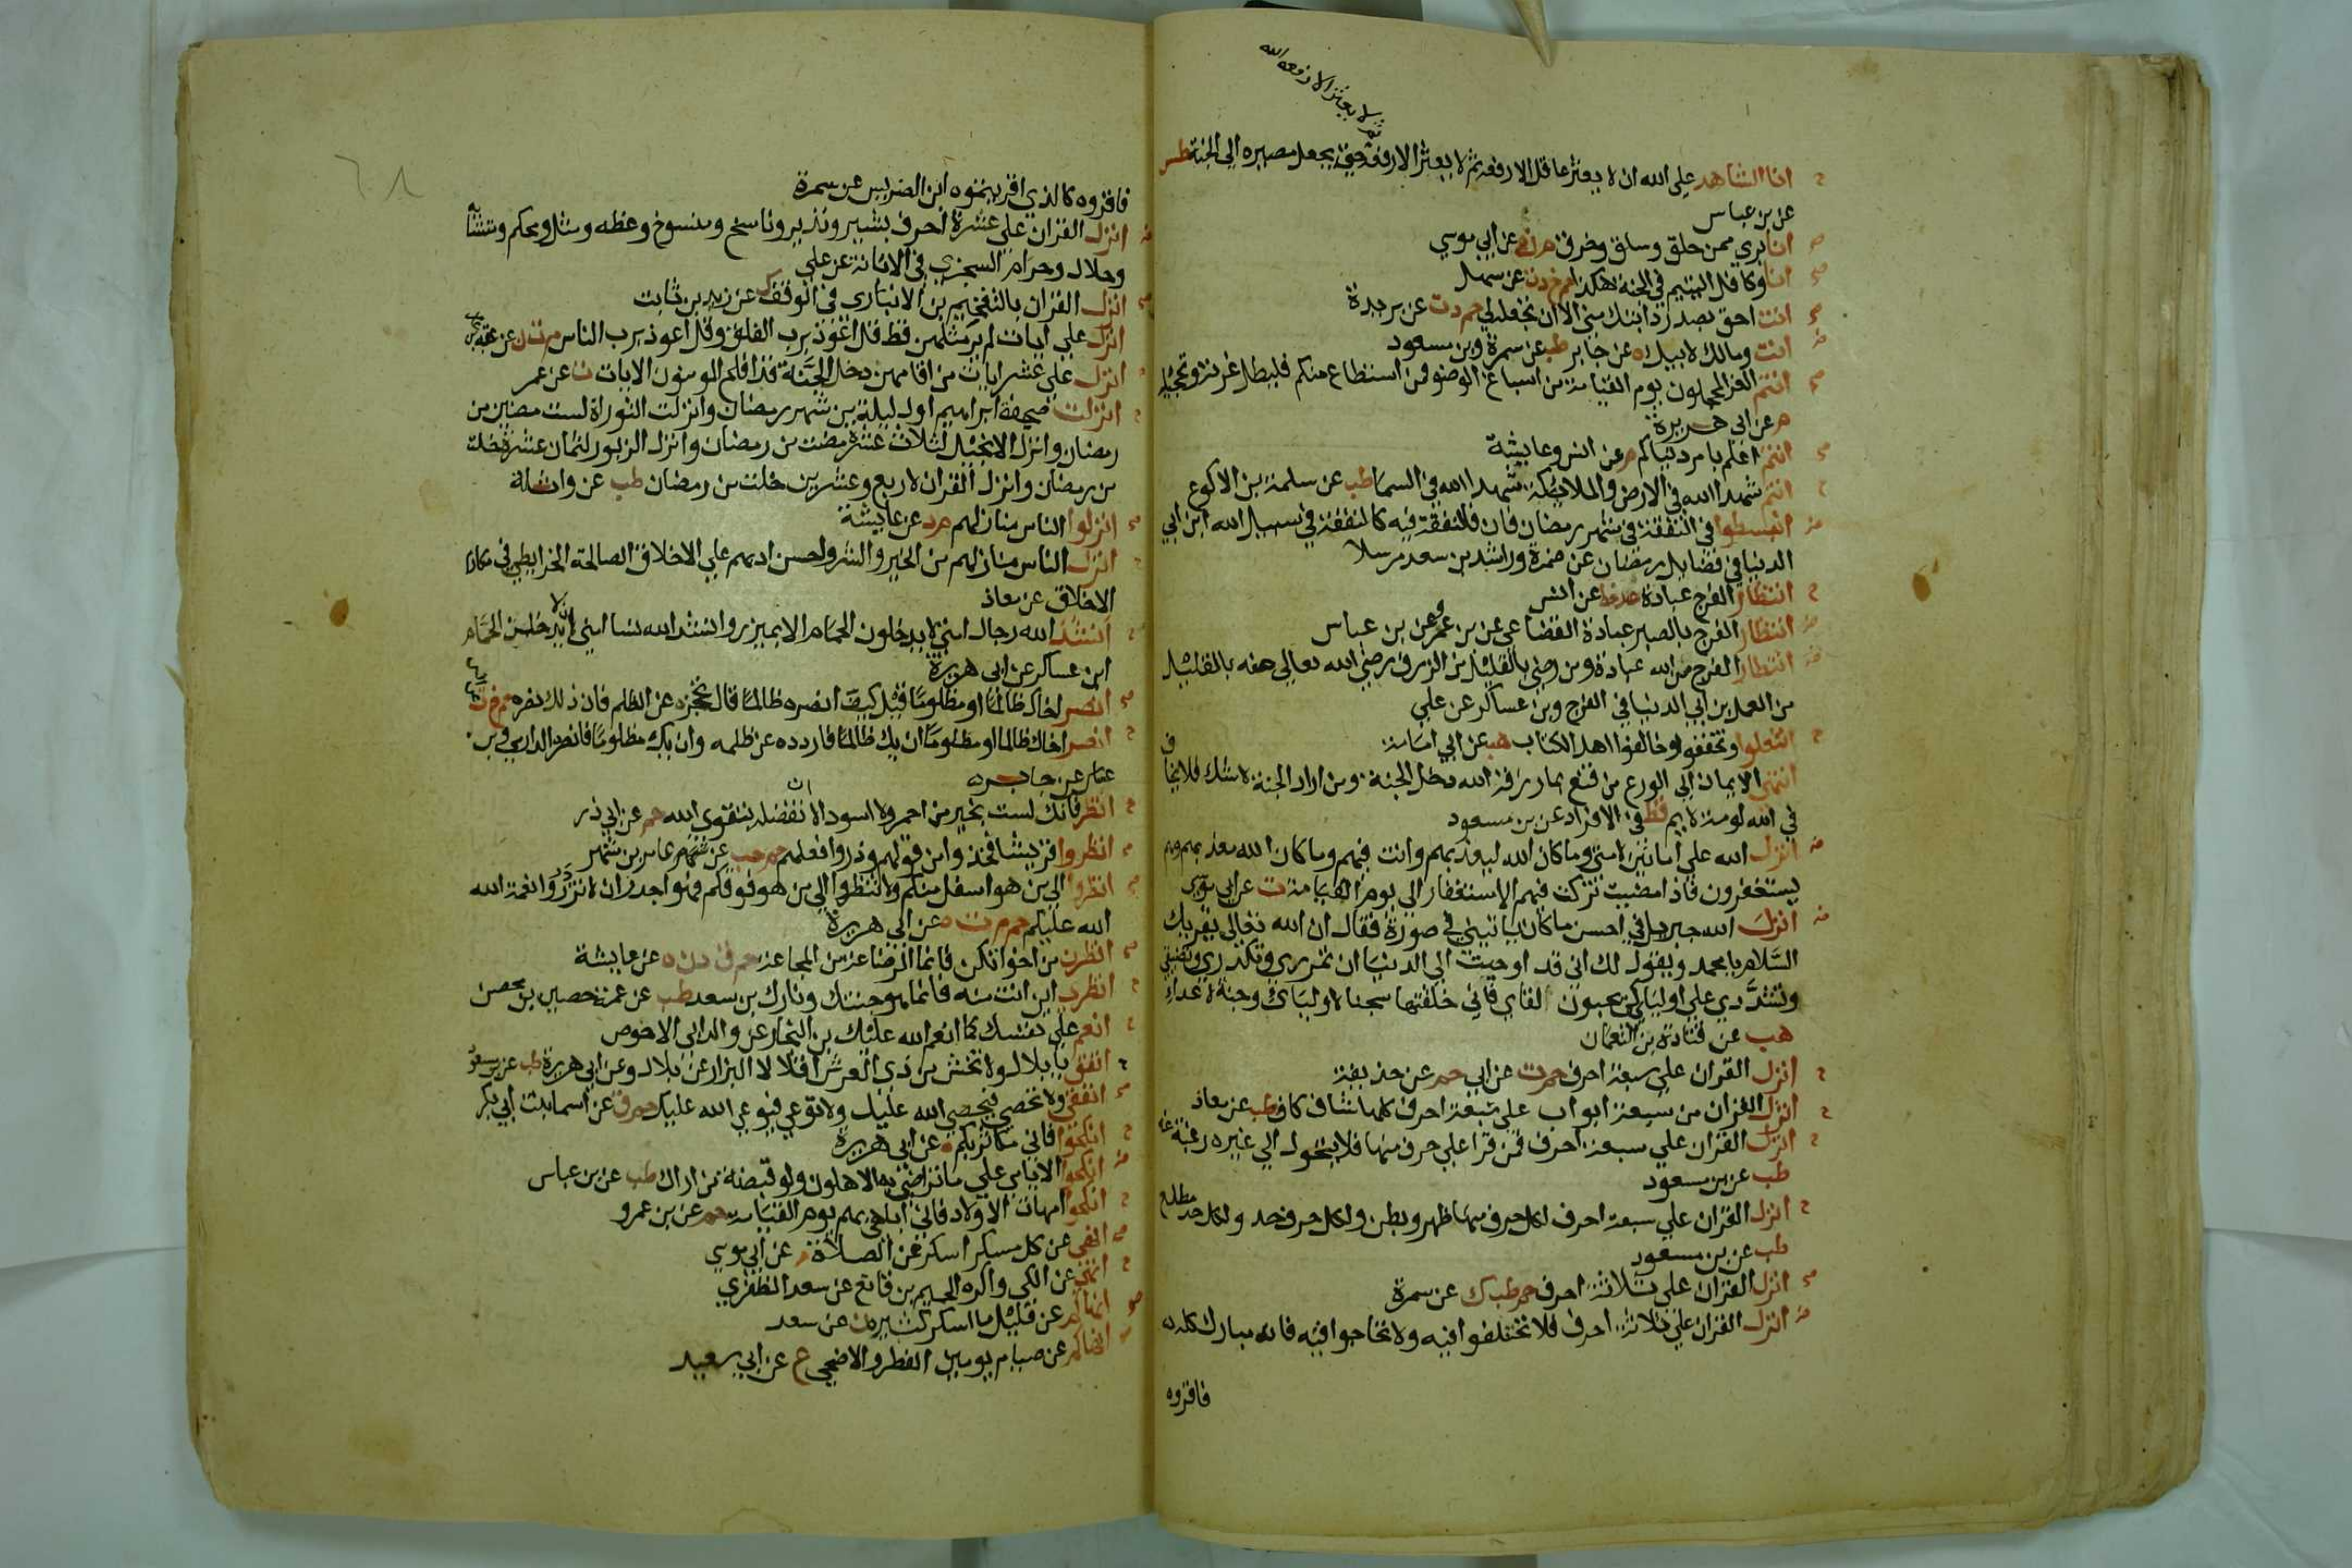 لا يعثر الا رفعه الله
ثم
انا الشاهد علي الله ان لا يعثر عاقل الا رفعه ثم لا يعثر الا رفعه حتي يجعل مصيره الي الجنة طس
عن بن عباس
انا بري ممن حلق وسلق وخرق م ن ه عن ابي موسي
انا وكافل اليتيم في الجنة هكذا حم خ د ت عن سهل
انت احق بصدر دابتك مني الا ان تجعله لي حم د ت عن بريدة
انت ومالك لابيك ه عن جابر طب عن سمرة وبن مسعود
انتم الغر المحجلون يوم القيامة من اسباغ الوضو فمن استطاع منكم فليطل غرته وتحجيله
م عن ابي هريرة
انتم اعلم بامر دنياكم م عن انس وعايشة
انتم شهدا الله في الارض والملايكة شهدا الله في السما طب عن سلمة بن الاكوع
انبسطوا في النفقة في شهر رمضان فان النفقة فيه كالنفقة في سبيل الله ابن ابي
الدنيا في فضايل رمضان عن ضمرة وراشد بن سعد مرسلا
انتظار الفرج عبادة عد خط عن انس
انتظار الفرج بالصبر عبادة القضاعي عن بن عمر وعن بن عباس
انتظار الفرج من الله عبادة ومن رضي بالقليل من الرزق رضي الله تعالي منه بالقليل
من العمل بن ابي الدنيا في الفرج وبن عساكر عن علي
انتعلوا وتخففوا وخالفوا اهل الكتاب هب عن ابي امامة
انتهي الايمان الي الورع من قنع بما رزقه الله دخل الجنة ومن اراد الجنة لا شك فلا يخاف
في الله لومة لايم قط في الافراد عن بن مسعود
انزل الله علي امانين لامتي وما كان الله ليعذبهم وانت فيهم وما كان الله معذبهم وهم
يستغفرون فاذا مضيت تركت فيهم الاستغفار الي يوم القيامة ت عن ابي موسي
انزل الله جبريل في احسن ما كان ياتيني في صورة فقال ان الله تعالي يقريك
السلام يا محمد ويقول لك اني قد اوحيت الي الدنيا ان تمرري وتكدري وتضيقي
وتشددي علي اوليائي كي يحبون لقاي فاني خلقتها سجنا لاوليائ وجنة لاعداي
هب عن قتادة بن النعمان
انزل القران علي سبعة احرف حم ت عن ابي حم عن حذيفة
انزل القران من سبعة ابواب علي سبعة احرف كلها شاف كاف طب عن معاذ
انزل القران علي سبعة احرف فمن قرا علي حرف منها فلا يتحول الي غيره رغبة عنه
طب عن بن مسعود
انزل القران علي سبعة احرف لكل حرف منها ظهر وبطن ولكل حرف حد ولكل حد مطلع
طب عن بن مسعود
انزل القران علي ثلاثة احرف حم طب ك عن سمرة
انزل القران علي ثلاثة احرف فلا تختلفوا فيه ولا تحاجوا فيه فانه مبارك كله
فاقروه
٦٨
فاقروه كالذي اقريتموه ابن الضريس عن سمرة
انزل القران علي عشرة احرف بشير ونذير وناسخ ومنسوخ وعظه ومثل ومحكم ومتشابه
وحلال وحرام السجزي في الابانة عن علي
انزل القران بالتفخيم بن الانباري في الوقف ك عن زيد بن ثابت
انزل علي ايات لم ير مثلهن قط قل اعوذ برب الفلق وقل اعوذ برب الناس م ت ن عن عقبة
انزل علي عشر ايات من اقامهن دخل الجنة قد افلح المومنون الايات ت عن عمر
انزلت صحف ابراهيم اول ليلة من شهر رمضان وانزلت التوراة لست مضين من
رمضان وانزل الانجيل لثلاث عشرة مضت من رمضان وانزل الزبور لثمان عشرة خلت
من رمضان وانزل القران لاربع وعشرين خلت من رمضان طب عن واثلة
انزلوا الناس منازلهم م د عن عايشة
انزل الناس منازلهم من الخير والشر واحسن ادبهم علي الاخلاق الصالحة الخرايطي في مكارم
الاخلاق عن معاذ
انشد الله رجال امتي لا يدخلون الحمام الا بميزر وانشد الله نسا امتي ان لا يدخلن الحمام
ابن عساكر عن ابي هريرة
انصر اخاك ظالما او مظلوما قيل كيف انصره ظالما قال تحجزه عن الظلم فان ذلك نصره حم خ ت
انصر اخاك ظالما او مظلوما ان يك ظالما فاردده عن ظلمه وان يك مظلوما فانصره الدارمي وبن
عساكر عن جابر
انظر فانك لست بخير من احمر ولا اسود الا ان تفضله بتقوي الله حم عن ابي ذر
انظروا قريشا فخذوا من قولهم وذروا فعلهم حم حب عن عامر بن شهر
انظروا الي من هو اسفل منكم ولا تنظروا الي من هو فوقكم فهو اجدر ان لا تزدروا نعمة الله
الله عليكم حم م ت ه عن ابي هريرة
انظرن من اخوانكن فانما الرضاعة من المجاعة حم ق د ن ه عن عايشة
انظري اين انت منه فانما هو جنتك ونارك بن سعد طب عن عمة حصين بن محصن
انعم علي نفسك كما انعم الله عليك بن النجار عن والد ابي الاحوص
انفق يا بلال ولا تخش من ذي العرش اقلالا البزار عن بلال وعن ابي هريرة طب عن بن مسعود
انفقي ولا تحصي فيحصي الله عليك ولا توعي فيوعي الله عليك حم ق عن اسما بنت ابي بكر
انكحوا فاني مكاثر بكم ه عن ابي هريرة
انكحوا الايامي علي ما تراضي به الاهلون ولو قبضة من اراك طب عن بن عباس
انكحوا امهات الاولاد فاني اباهي بهم يوم القيامة حم عن بن عمرو
انهي عن كل مسكر اسكر عن الصلاة م عن ابي موسي
انهي عن الكي واكره الحميم بن قانع عن سعد الظفري
انهاكم عن قليل ما اسكر كثيره ن عن سعد
انهاكم عن صيام يومين الفطر والاضحي ع عن ابي سعيد